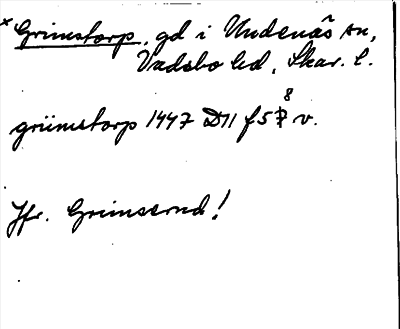 * Grimstorp, gd i Undenäs sn,
Vadsbo hd, Skar. l.
grümstorp 1447 D11 f 58 v.
Jfr. Grimserud!